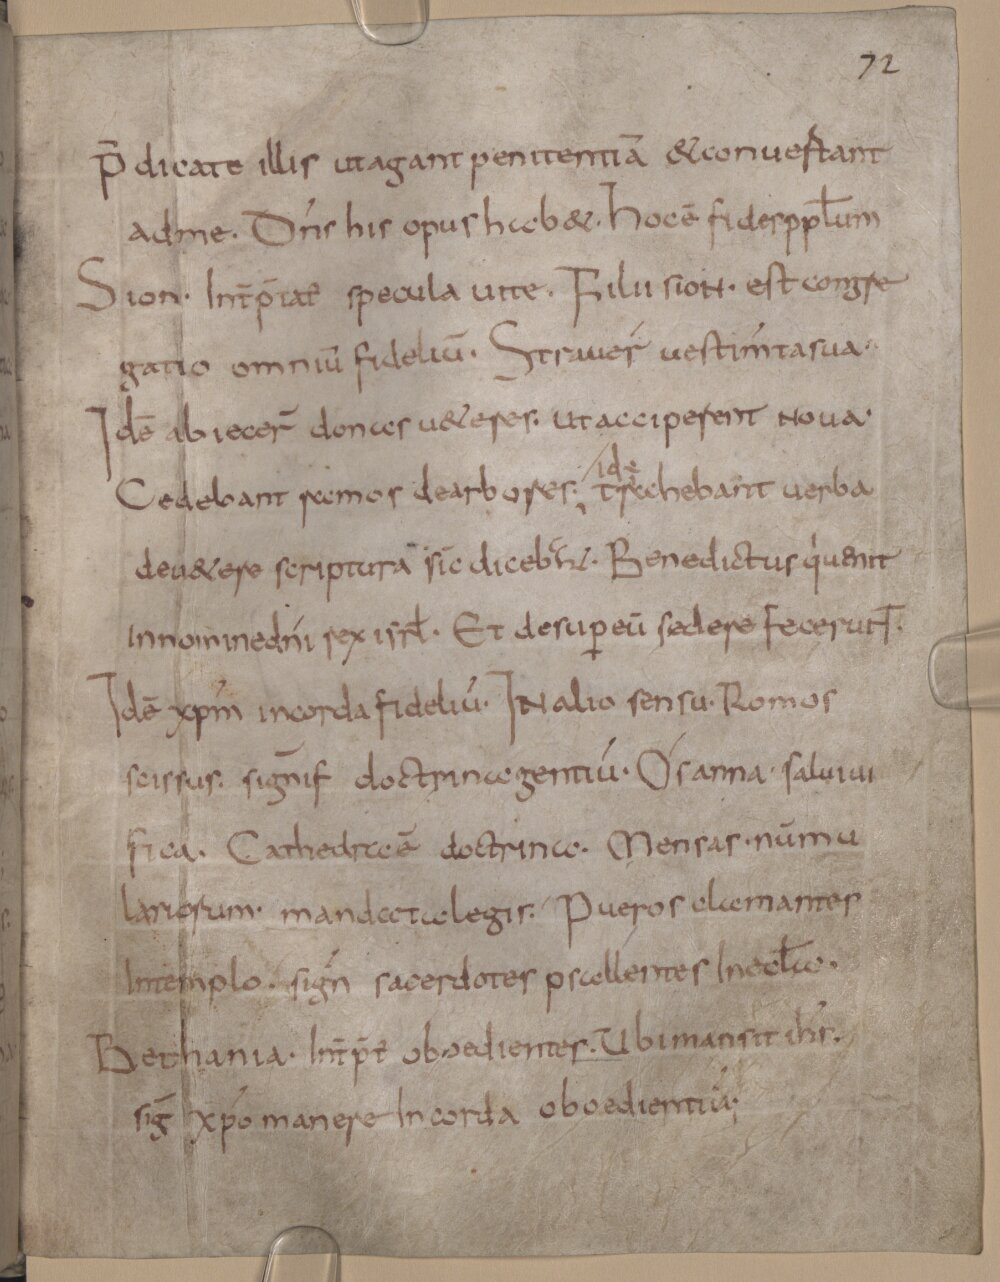 72
p̄dicate illis ut agant penitentiā & convertant
ad me. Dn̄s his opus habet. Hoc ē fides ppl̄um
Sion. Int̄p̄tat̄ specula vite. Filii sion. est congre
gatio omniū fideliū. Straver̄ vestim̄ta sua.
Idē abiecer̄ donas v&eres. ut acciperent nova.
Cedebant ramos dearbores. idē trahebant verba
dev&ere scriptura sic diceb̄. Benedictus q̇ venit
In nomine dn̄i rex isrl̄. Et desup eū sedere fecerut̄.
Idē xp̄m in corda fideliū. In alio sensu. Ramos
scissus. signif̄ doctrina gentiū. Osanna. salvivi
fica. Cathedra ē doctrina. Mensas. nūmu
lariorum. mandata legis. Pueros clamantes
In templo. sign̄ sacerdotes psallentes In eccl̄a.
Bethania. Int̄p̄t̄ oboedientes. Ubi mansit ih̄s.
siḡ xp̄o manere In corda oboedientiū;